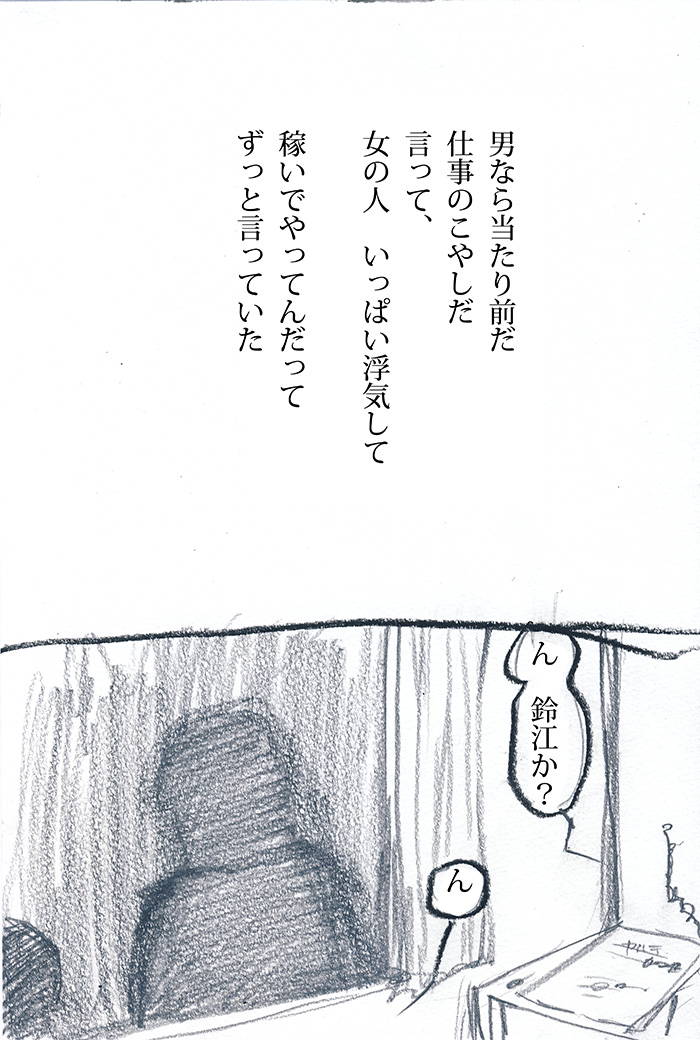 男なら当たり前だ
仕事のこやしだ
言って、
女の人　いっぱい浮気して
稼いでやってんだって
ずっと言っていた
ん
鈴江か？
ん